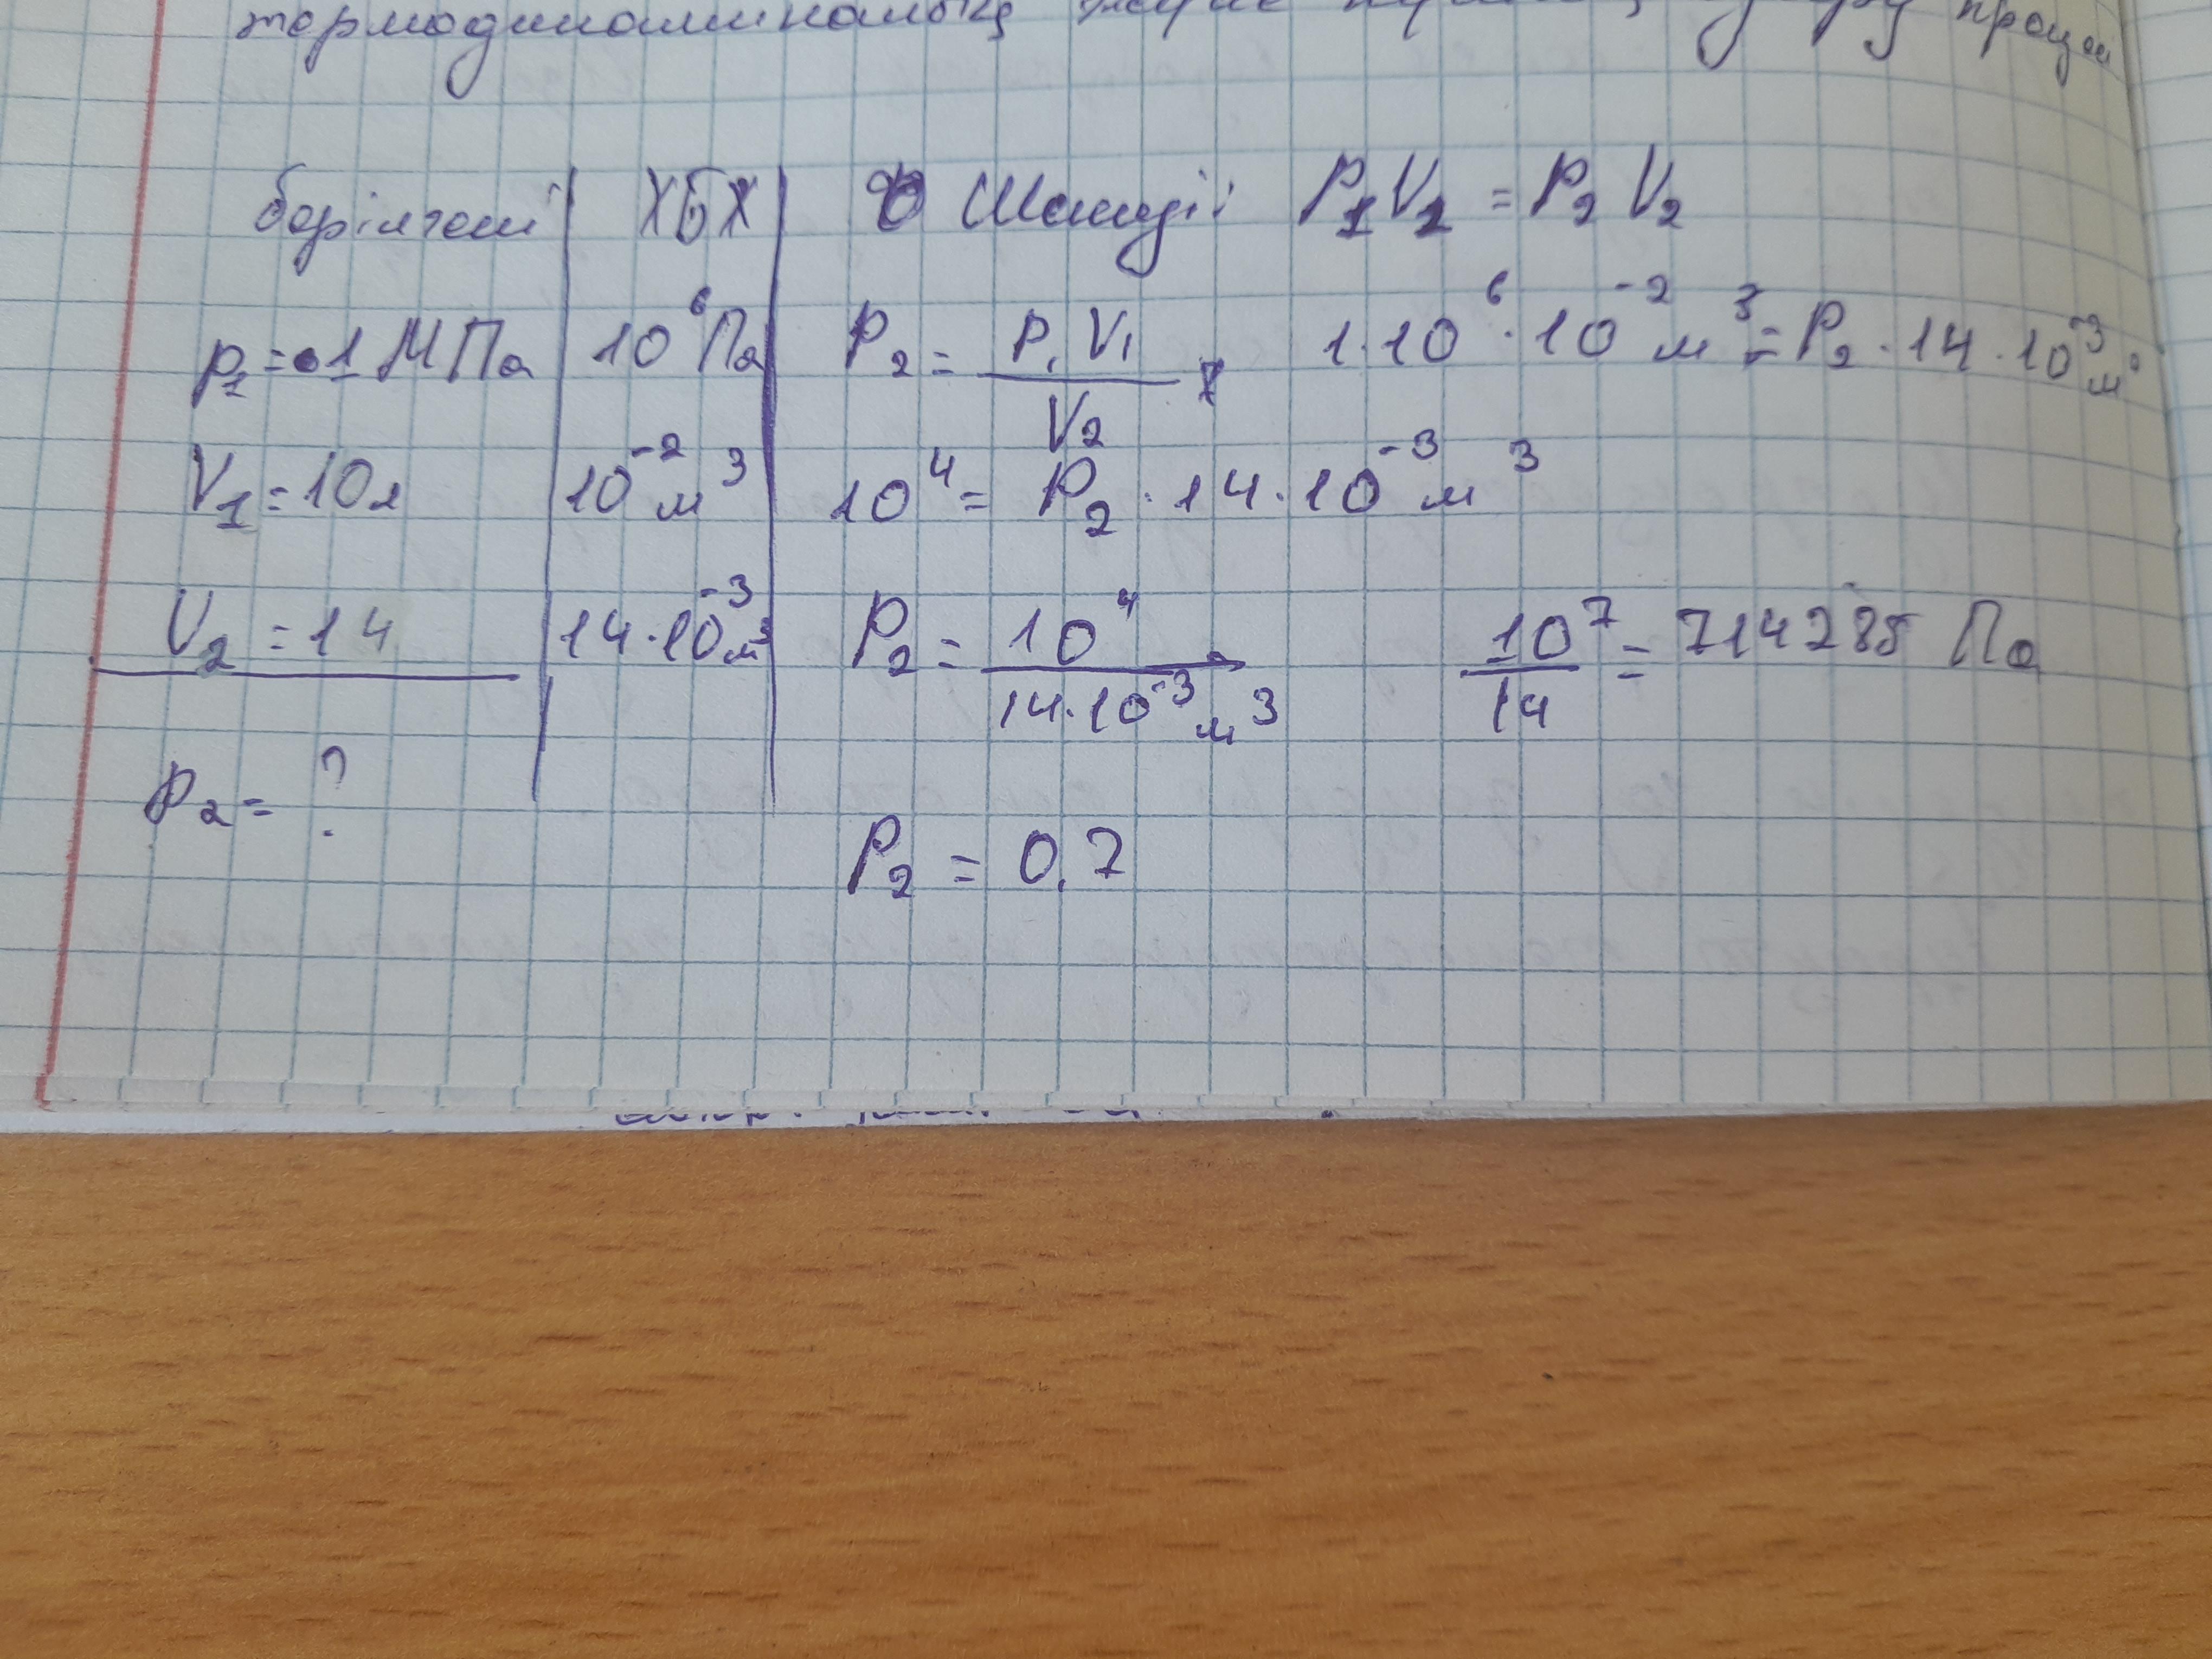 термодинамикалық процесі
берілгені ХБХ Шешуі: P₁V₁ = P₂V₂
p₁ = 1 МПа 10⁶ Па P₂ = P₁V₁ / V₂ 1·10⁶·10⁻² м³ = P₂·14·10⁻³ м³
V₁ = 10л 10⁻² м³ 10⁴ = P₂·14·10⁻³ м³
V₂ = 14 14·10⁻³ м³ P₂ = 10⁴ / 14·10⁻³ м³ 10⁷ / 14 = 714285 Па
P₂ = ?
P₂ = 0,7